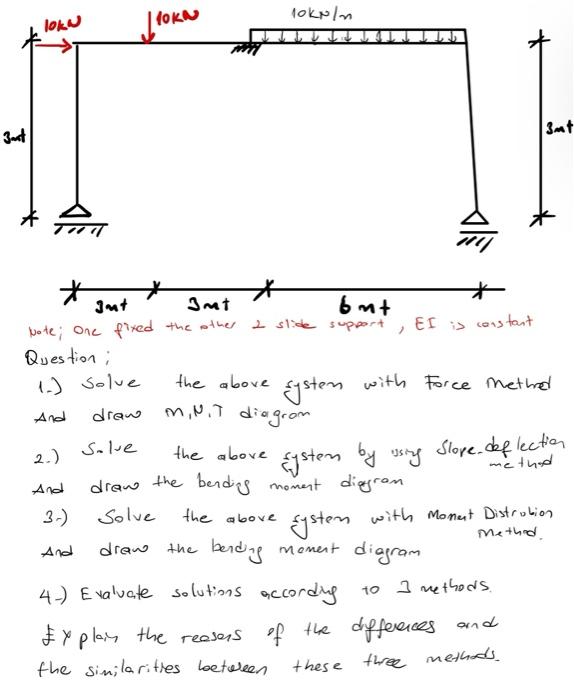 10kN/m
10kN
10kN
3mt
3mt
3mt
3mt
6mt
Note; One fixed the other 2 slide support, EI is constant
Question;
1.) Solve the above system with Force Method
And draw M,N,T diagram
2.) Solve the above system by using Slope-deflection method
And draw the bending moment diagram
3.) Solve the above system with Moment Distrubion Method.
And draw the bending moment diagram
4-) Evaluate solutions according to 3 methods.
Explain the reasons of the differences and
the similarities between these three methods.